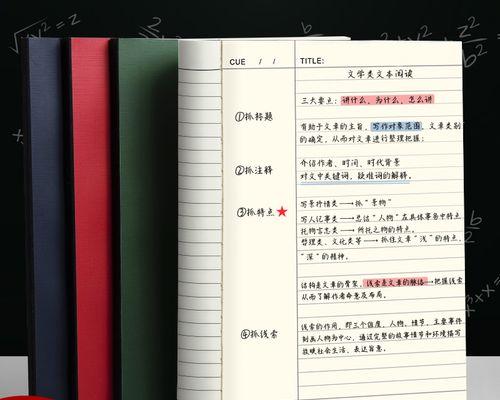 CUE / /
TITLE:
文学类文本阅读
三大要点：讲什么，为什么，怎么讲
①抓标题
有助于文章的主旨，写作对象范围，文章类别
的确定，从而对文章进行整理把握；
②抓注释
介绍作者、时间、时代背景
对文中关键词，疑难词的解释。
③抓特点★
写景抒情类→抓"景物"
写人记事类→总结"人物"在具体事务中特点
托物言志类→所托之物的特点。
哲理类、文化类等→抓住文章"浅"的特点，
"深"的精神。
结构是文章的骨架，线索是文章的脉络→把握线索
从而了解作者命意及布局。
④抓线索
线索的作用，即三个维度，人物，情节，主要事件
刻画人物为中心，通过完整的故事情节和环境描写
反映社会生活、表达旨意。